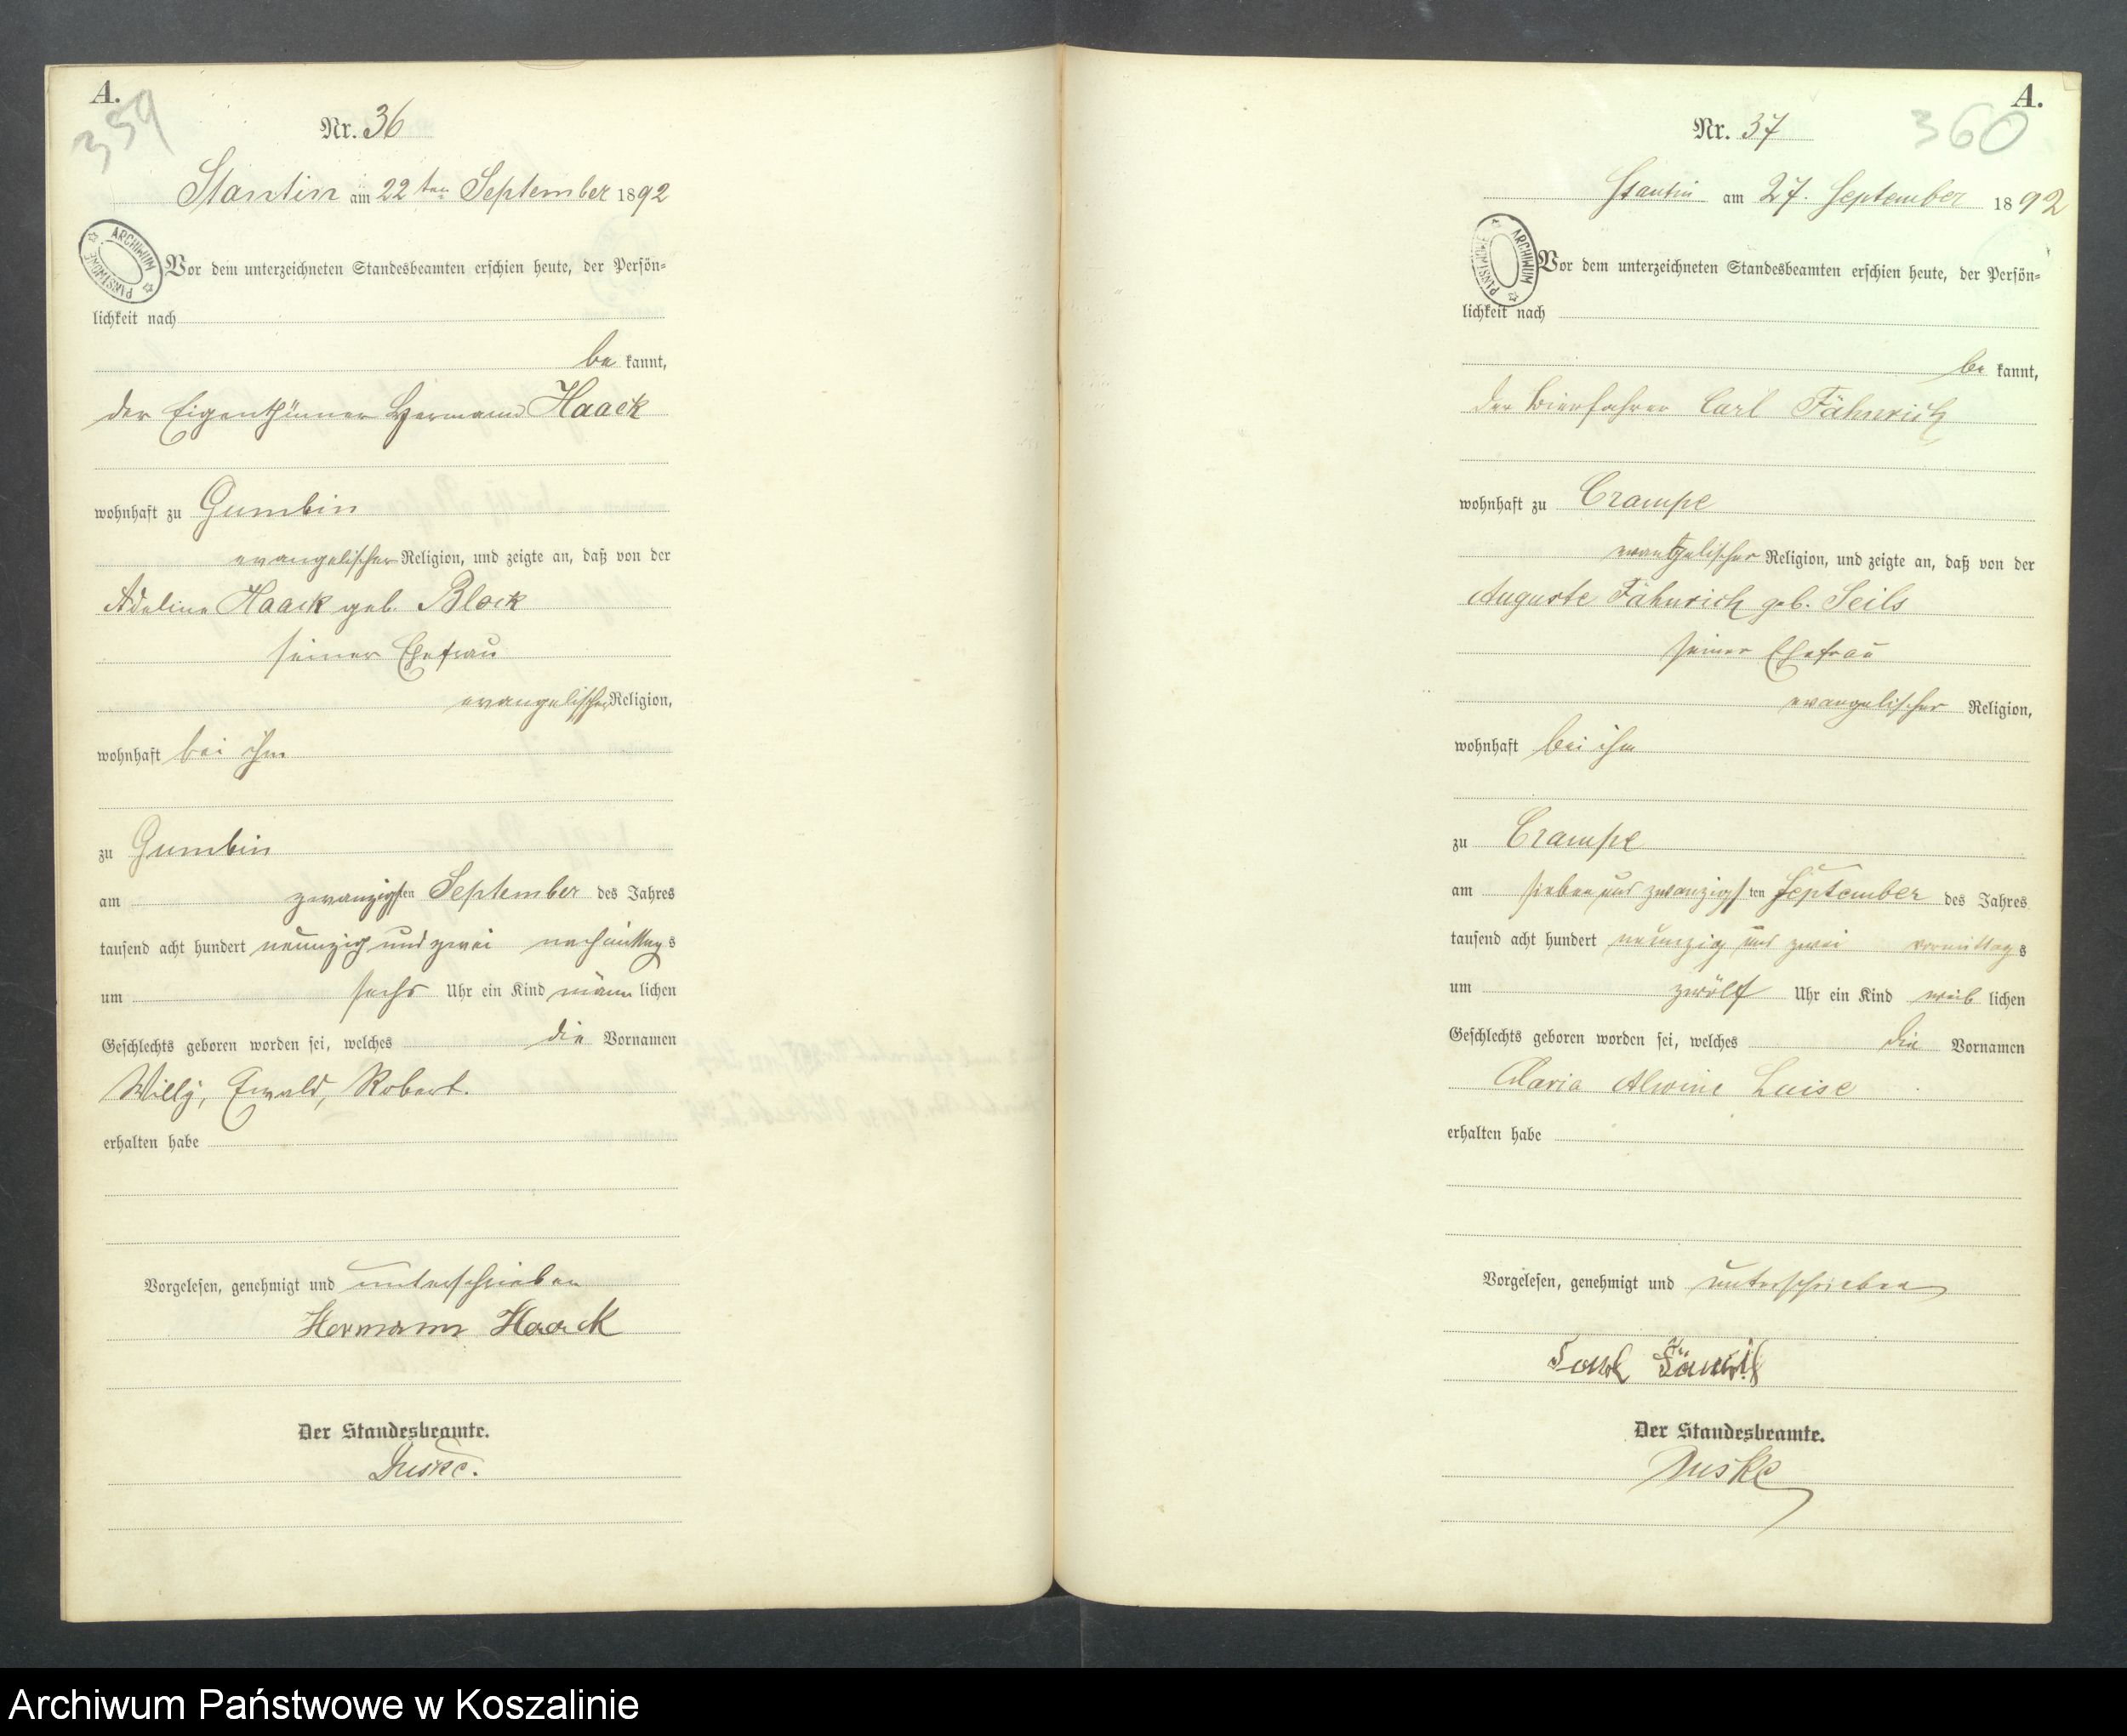 A.
359
Nr. 36
Stantin am 22ten September 1892
ARCHIWUM PAŃSTWOWE
Vor dem unterzeichneten Standesbeamten erschien heute, der Persön-
lichkeit nach
be kannt,
der Eigenthümer Hermann Haack
wohnhaft zu Gumbin
evangelischer Religion, und zeigte an, daß von der
Adeline Haack geb. Block
seiner Ehefrau
evangelischer Religion,
wohnhaft bei ihm
zu Gumbin
am zwanzigsten September des Jahres
tausend acht hundert neunzig und zwei nachmittags
um sechs Uhr ein Kind männlichen
Geschlechts geboren worden sei, welches die Vornamen
Willy, Ewald, Robert.
erhalten habe
Vorgelesen, genehmigt und unterschrieben
Hermann Haack
Der Standesbeamte.
Kuske.
A.
360
Nr. 37
Stantin am 27. September 1892
ARCHIWUM PAŃSTWOWE
Vor dem unterzeichneten Standesbeamten erschien heute, der Persön-
lichkeit nach
be kannt,
der Bierfahrer Carl Fähnrich
wohnhaft zu Crampe
evangelischer Religion, und zeigte an, daß von der
Auguste Fähnrich geb. Seils
seiner Ehefrau
evangelischer Religion,
wohnhaft bei ihm
zu Crampe
am sieben und zwanzigsten September des Jahres
tausend acht hundert neunzig und zwei vormittags
um zwölf Uhr ein Kind weiblichen
Geschlechts geboren worden sei, welches die Vornamen
Maria Alwine Luise
erhalten habe
Vorgelesen, genehmigt und unterschrieben
Der Standesbeamte.
Kuske
Archiwum Państwowe w Koszalinie